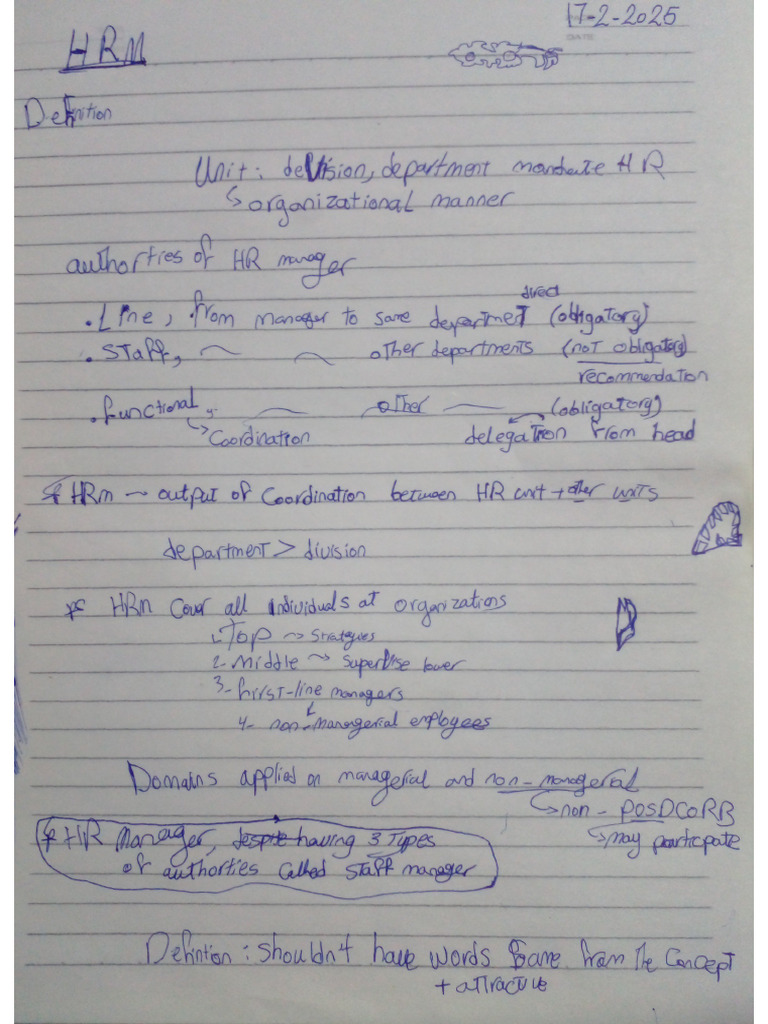 17-2-2025
DATE
HRM
Definition
Unit: devision, department mandate HR
↳ organizational manner
authorties of HR manager
• Line, from manager to same department direct (obligatory)
• Staff, ~ ~ other departments (not obligatory)
recommendation
• functional, ~ other ~ (obligatory)
↳ Coordination delegation from head
* HRm → output of coordination between HR unit + other units
department > division
* HRm cover all individuals at organizations
1. Top → Strategies
2- Middle → supervise lower
3- first-line managers
4- non-managerial employees
Domains applied on managerial and non-managerial
↳ non - POSDCORB
↳ may participate
* HR Manager, despite having 3 Types
of authorties called staff manager
Definition: shouldn't have words same from the concept
+ attractive